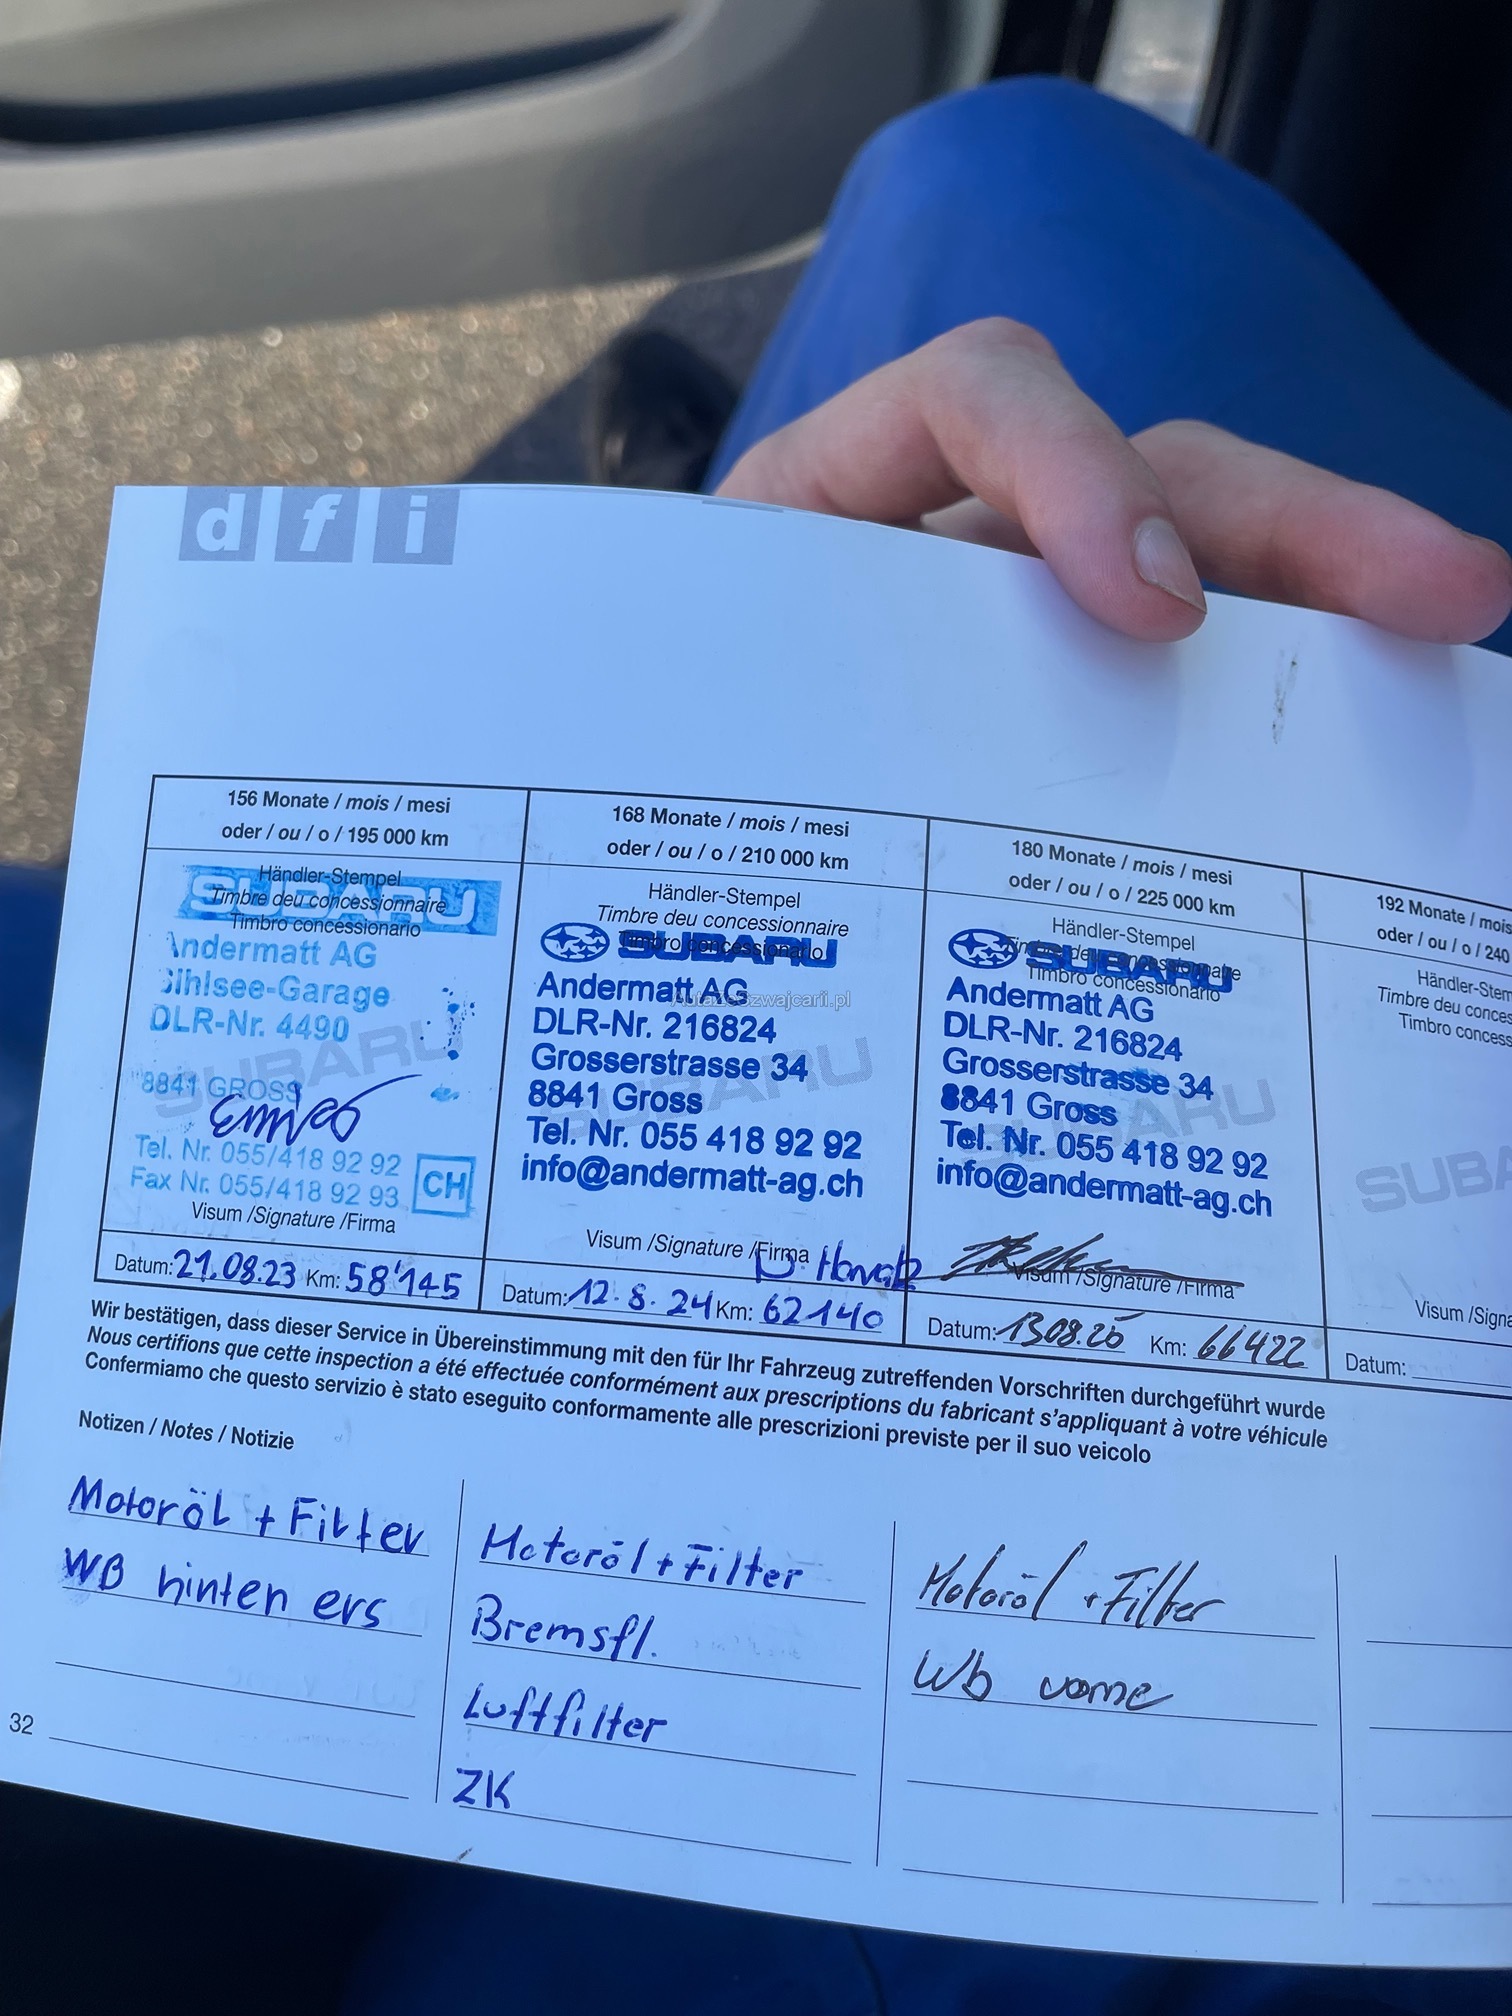 d f i
156 Monate / mois / mesi
oder / ou / o / 195 000 km
Händler-Stempel
Timbre deu concessionnaire
Timbro concessionario
SUBARU
Andermatt AG
Sihlsee-Garage
DLR-Nr. 4490
SUBARU
8841 GROSS
Tel. Nr. 055/418 92 92
Fax Nr. 055/418 92 93
CH
Visum /Signature /Firma
Datum: 21.08.23 Km: 58'145
168 Monate / mois / mesi
oder / ou / o / 210 000 km
Händler-Stempel
Timbre deu concessionnaire
Timbro concessionario
SUBARU
Andermatt AG
AutazeSzwajcarii.pl
DLR-Nr. 216824
Grosserstrasse 34
SUBARU
8841 Gross
Tel. Nr. 055 418 92 92
info@andermatt-ag.ch
Visum /Signature /Firma
Datum: 12.8.24 Km: 62140
180 Monate / mois / mesi
oder / ou / o / 225 000 km
Händler-Stempel
Timbre deu concessionnaire
Timbro concessionario
SUBARU
Andermatt AG
DLR-Nr. 216824
Grosserstrasse 34
SUBARU
8841 Gross
Tel. Nr. 055 418 92 92
info@andermatt-ag.ch
Visum /Signature /Firma
Datum: 13.08.25 Km: 66422
192 Monate / mois
oder / ou / o / 240
Händler-Stem
Timbre deu conces
Timbro concess
SUBA
Visum /Signa
Datum:
Wir bestätigen, dass dieser Service in Übereinstimmung mit den für Ihr Fahrzeug zutreffenden Vorschriften durchgeführt wurde
Nous certifions que cette inspection a été effectuée conformément aux prescriptions du fabricant s'appliquant à votre véhicule
Confermiamo che questo servizio è stato eseguito conformamente alle prescrizioni previste per il suo veicolo
Notizen / Notes / Notizie
Motoröl + Filter
WB hinten ers
Motoröl + Filter
Bremsfl.
Luftfilter
ZK
Motoröl + Filter
Wb vorne
32